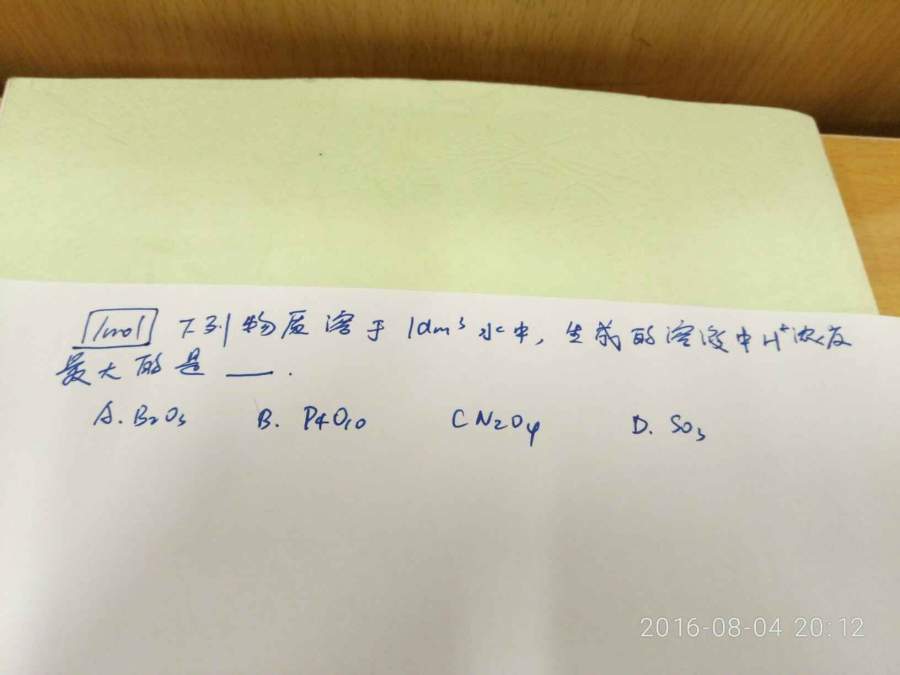 1mol 下列物质溶于1dm³水中,生成的溶液中H⁺浓度
最大的是 ___.
A. B₂O₃ B. P₄O₁₀ C N₂O₄ D. SO₃
2016-08-04 20:12